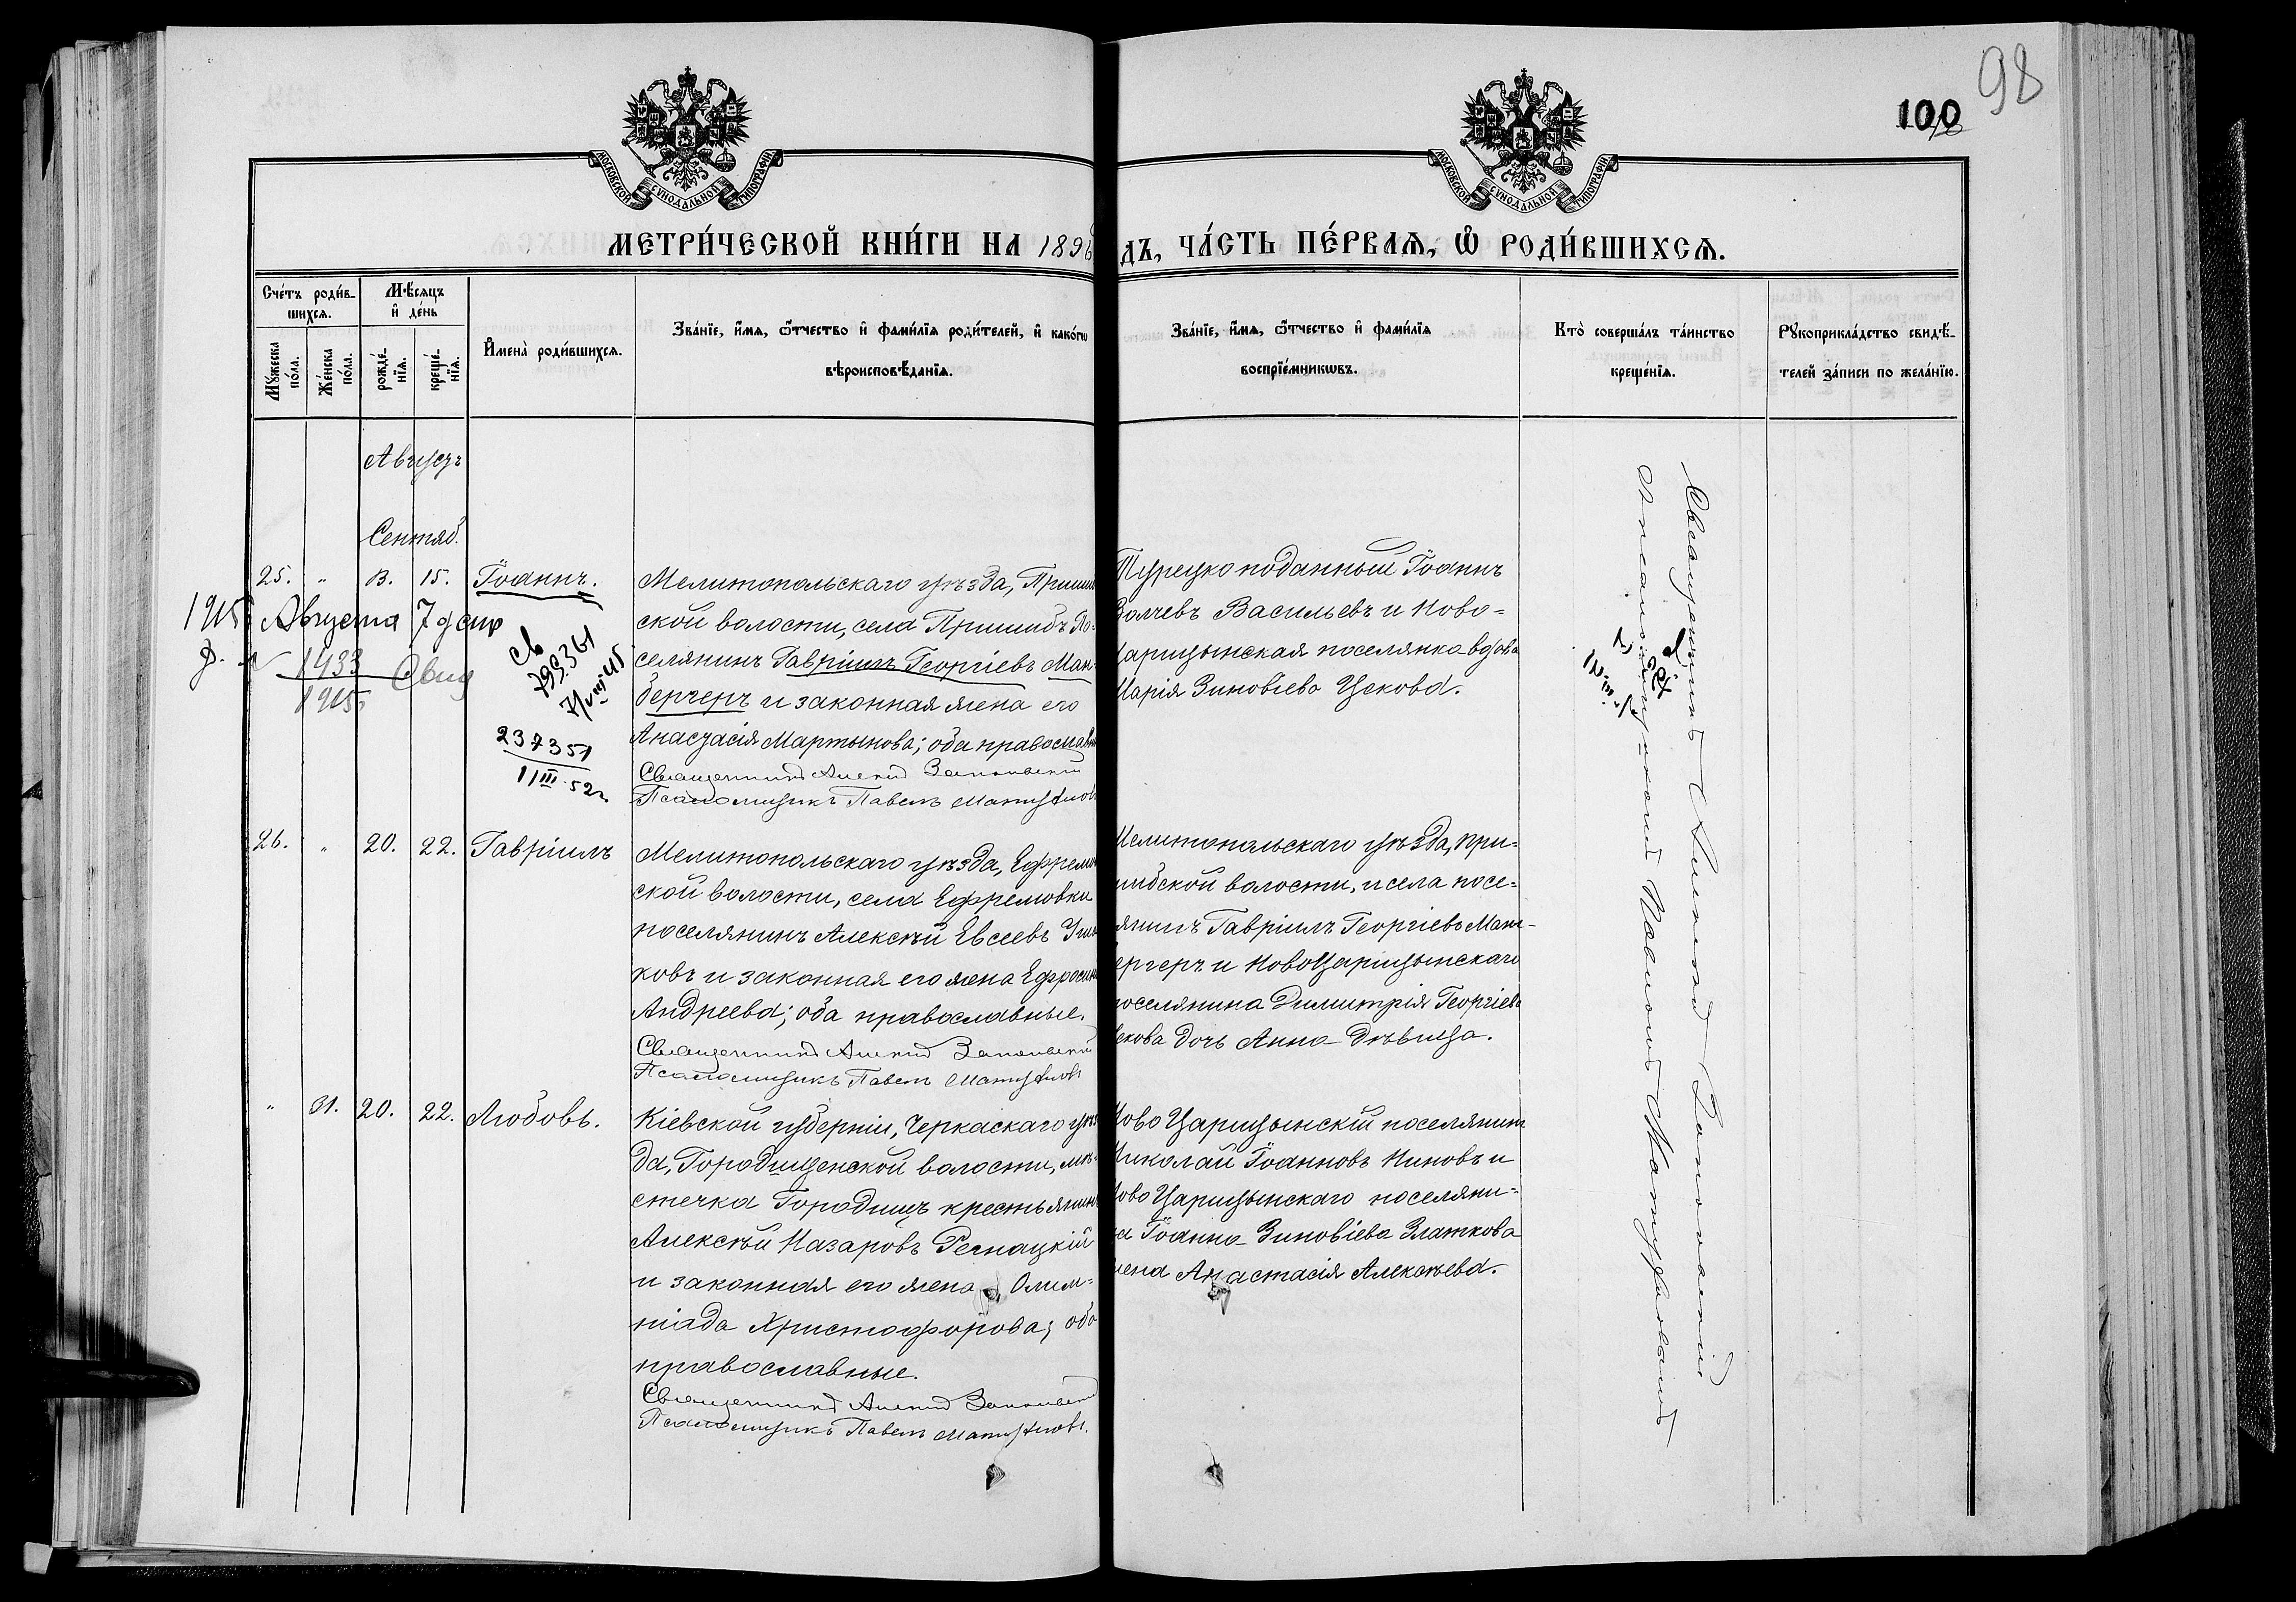 98
100
МОСКОВСКОЙ СУНОДАЛЬНОЙ ТИПОГРАФІИ
МОСКОВСКОЙ СУНОДАЛЬНОЙ ТИПОГРАФІИ
МЕТРИ́ЧЕСКОЙ КНИ́ГИ НА 1896
ДЪ, ЧА́СТЬ ПЕ́РВАѦ, Ѡ РОДИ́ВШИХСѦ.
Сче́тъ роди́в-
шихсѧ.
Мѣ́сѧцъ
и҆ де́нь
Мꙋ́жеска
по́ла.
Же́нска
по́ла.
рожде́-
нїѧ.
креще́-
нїѧ.
И҆мена̀ роди́вшихсѧ.
Зва́нїе, и҆́мѧ, ѻ҆́тчество и҆ фами́лїѧ роди́телей, и҆ како́гѡ
вѣроисповѣ́данїѧ.
Зва́нїе, и҆́мѧ, ѻ҆́тчество и҆ фами́лїѧ
воспрїе́мникѡвъ.
Кто̀ соверша́лъ та́инство
креще́нїѧ.
Рꙋкоприкла́дство свидѣ́-
телей за́писи по жела́нїю.
Августъ
Сентяб.
25. " 13. 15. Іоаннъ.
Мелитопольскаго уѣзда, Пришиб
ской волости, села Пришибъ По-
селянинъ Гавріилъ Георгіевъ Ман-
бергеръ и законная жена его
Анастасія Мартынова; оба православн
Священникъ Алексій
Псаломщикъ Павелъ
Турецко поданный Іоаннъ
Волчевъ Васильевъ и Ново-
Царицынская поселянка вдова
Марія Зиновіева Цекова.
1915 Августа 7 д
1433
1915
Свид
Св
799361
7/VIII 45
237351
11 III 52г
26. " 20. 22. Гавріилъ
Мелитопольскаго уѣзда, Ефремов
ской волости, села Ефремовки
поселянинъ Алексѣй Евсеевъ
ковъ и законная его жена Ефросин
Андреева; оба православные.
Священникъ Алексій
Псаломщикъ Павелъ
Мелитопольскаго уѣзда, При-
шибской волости, и села посе-
лянинъ Гавріилъ Георгіевъ Ман-
бергеръ и НовоЦарицынскаго
поселянина Димитрія Георгіева
Цекова дочь Анна дѣвица.
" 31. 20. 22. Любовь.
Кіевской губерніи, Черкаскаго уѣз
да, Городищенской волости, мѣ-
стечка Городищъ крестьянинъ
Алексѣй Назаровъ
и законная его жена Олим-
піада Христофорова; оба
православные.
Священникъ Алексій
Псаломщикъ Павелъ
Ново Царицынскій поселянинъ
Николай Іоанновъ Ниновъ и
Ново Царицынскаго поселяни-
на Іоанна Зиновіева Златкова
жена Анастасія Алексѣева.
Священникъ Алексій
Псаломщикъ Павелъ